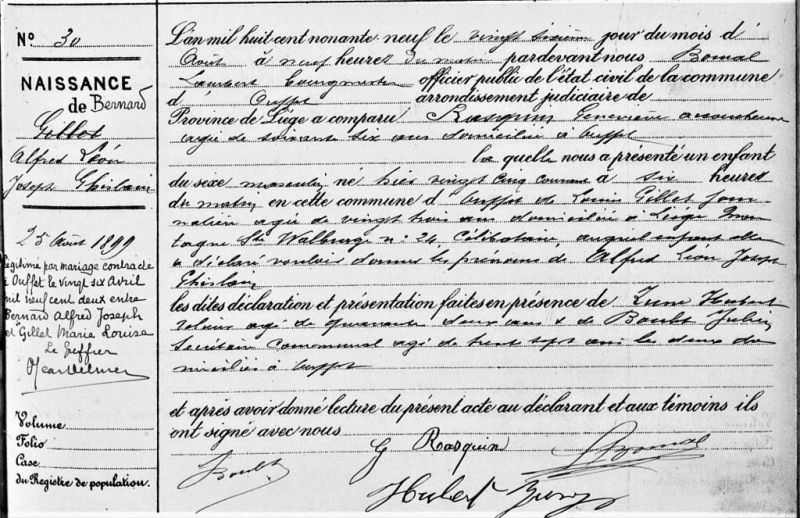 N° 30
NAISSANCE
de Bernard
Gillet
Alfred Léon
Joseph Ghislain
25 Août 1899
Légitimé par mariage contracté
à Ouffet le vingt six Avril
mil neuf cent deux entre
Bernard Alfred Joseph
et Gillet Marie Louise
Le Greffier
Volume
Folio
Case
du Registre de population.
L'an mil huit cent nonante neuf le vingt sixième jour du mois d'
Août à neuf heures du matin pardevant nous Bonal
Lambert bourgmestre officier public de l'état civil de la commune
d' Ouffet arrondissement judiciaire de
Province de Liège a comparu Rasquin Geneviève accoucheuse
agée de soixante six ans domiciliée à Ouffet
la quelle nous a présenté un enfant
du sexe masculin né hier vingt cinq courant à six heures
du matin en cette commune d' Ouffet de Louise Gillet jour
nalière agée de vingt trois ans domiciliée à Liège Mon
tagne Ste Walburge n: 24 Célibataire, auquel enfant elle
a déclaré vouloir donner les prénoms de Alfred Léon Joseph
Ghislain
les dites déclaration et présentation faites en présence de Hubert
agé de quarante deux ans & de Boulet Julien
Secrétaire Communal agé de trente sept ans les deux do
miciliés à Ouffet
et après avoir donné lecture du présent acte au déclarant et aux témoins ils
ont signé avec nous
G Rasquin
Boulet
Hubert